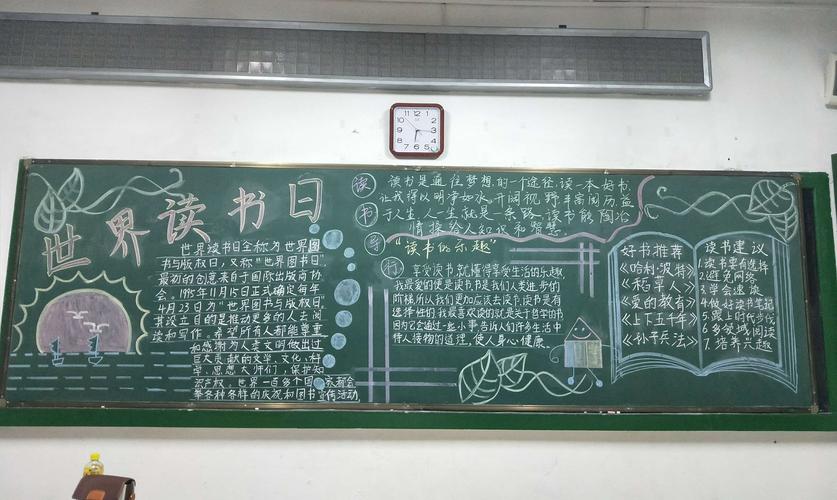 世界读书日
世界读书日全称为世界图
书与版权日，又称“世界图书日”
最初的创意来自于国际出版商协
会。1995年11月15日正式确定每年
4月23日为“世界图书与版权日”
其设立目的是推动更多的人去阅
读和写作，希望所有人都能尊重
和感谢为人类文明做出过
巨大贡献的文学，文化，科
学，思想大师们，保护知
识产权。世界一百多个国家都会
举各种各样的庆祝和图书宣传活动
读书导行
读书是通往梦想的一个途径，读一本好书，
让我得以明净如水，开阔视野，丰富阅历，益
于人生，人一生就是一条路，读书能陶冶
情操给人知识和智慧
“读书的乐趣”
享受读书就懂得享受生活的乐趣
我最爱的便是读书，书是我们人类进步的
阶梯所以我们更加应该去读书，读书是有
选择性的，我最喜欢读的就是关于哲学的书
因为它会通过一些小事告诉人们许多生活中
待人接物的道理，使人身心健康。
好书推荐
《哈利·波特》
《稻草人》
《爱的教育》
《上下五千年》
《孙子兵法》
读书建议
1.读书要有选择
2.避免网络
3.学会速读
4.做好读书笔记
5.跟上时代步伐
6.多领域阅读
7.培养兴趣
12
1
2
3
4
5
6
7
8
9
10
11